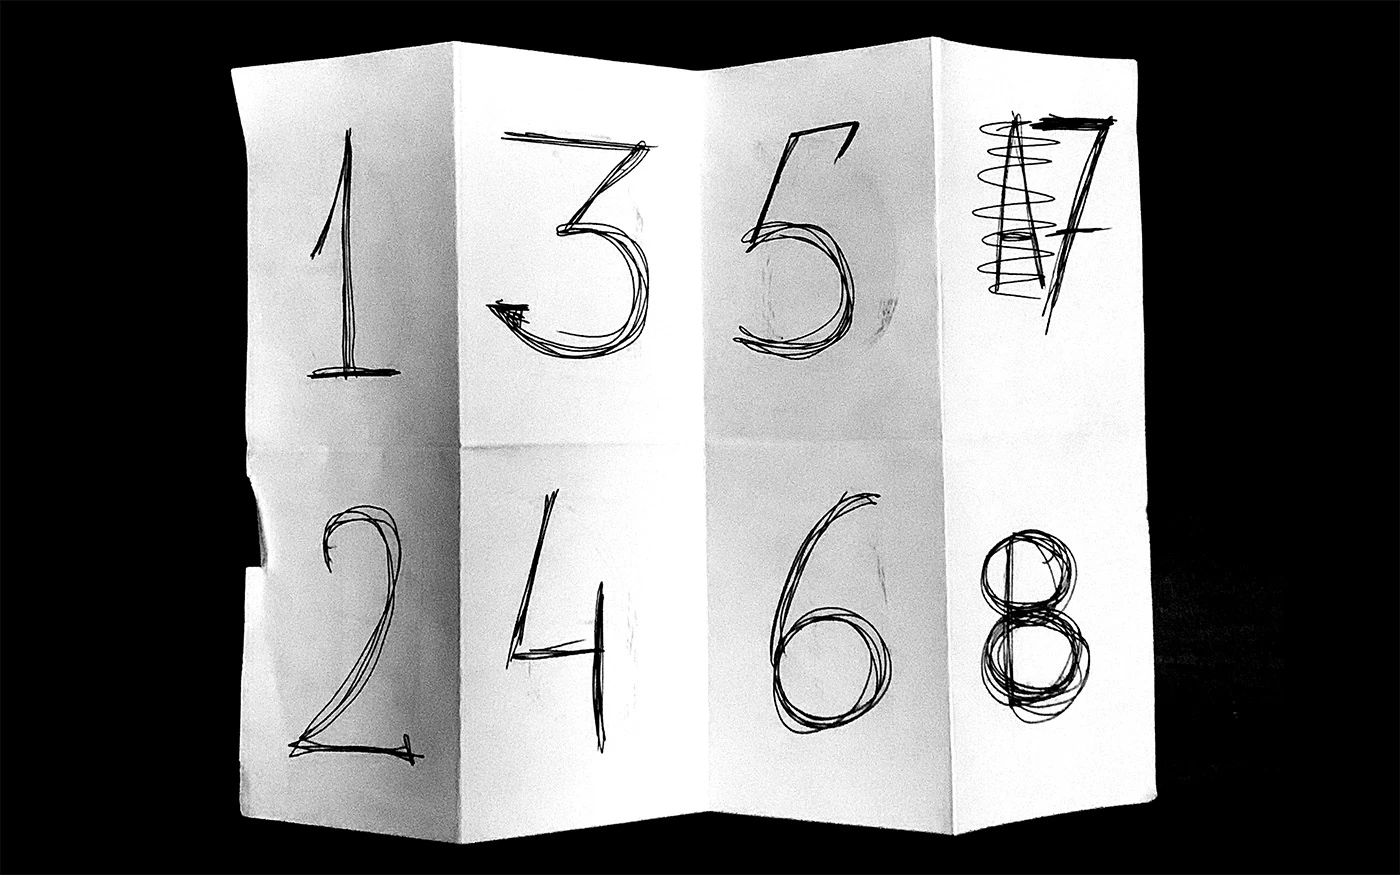 1 3 5 A7
2 4 6 8